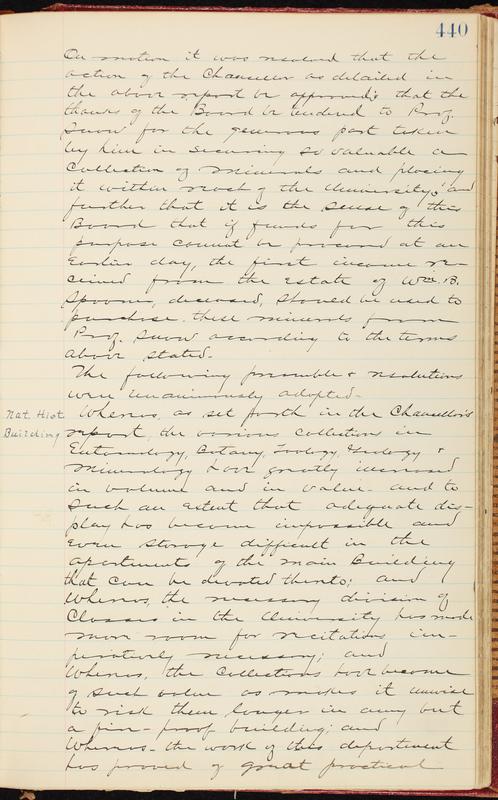 440
On motion it was resolved that the
action of the Chancellor as detailed in
the above report be approved; that the
thanks of the Board be tendered to Prof.
Snow for the generous part taken
by him in securing so valuable a
collection of minerals and placing
it within reach of the University; and
further that it is the sense of this
Board that if funds for this
purpose cannot be procured at an
earlier day, the first income re-
ceived from the estate of Wm. B.
Spooner, deceased, should be used to
purchase these minerals from
Prof. Snow according to the terms
above stated.
The following preamble & resolutions
were unanimously adopted.
Nat. Hist
Building
Whereas, as set forth in the Chancellor's
report, the various collections in
Entomology, Botany, Zoology, Geology &
Mineralogy have greatly increased
in volume and in value and to
such an extent that adequate dis-
play has become impossible and
even storage difficult in the
apartments of the main Building
that can be devoted thereto; and
Whereas, the necessary division of
Classes in the University has made
more room for recitations im-
peratively necessary; and
Whereas, the collections have become
of such value as makes it unwise
to risk them longer in any but
a fire-proof building; and
Whereas - the work of this department
has proved of great practical